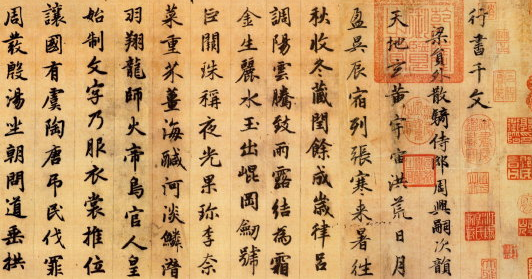 行書千文
梁員外散騎侍郎周興嗣次韻
天地玄黃宇宙洪荒日月
盈昃辰宿列張寒来暑往
秋收冬藏閏餘成歲律呂
調陽雲騰致雨露結為霜
金生麗水玉出崐岡劒號
巨闕珠稱夜光果珍李柰
菜重芥薑海鹹河淡鱗潛
羽翔龍師火帝鳥官人皇
始制文字乃服衣裳推位
讓國有虞陶唐吊民伐罪
周發殷湯坐朝問道垂拱